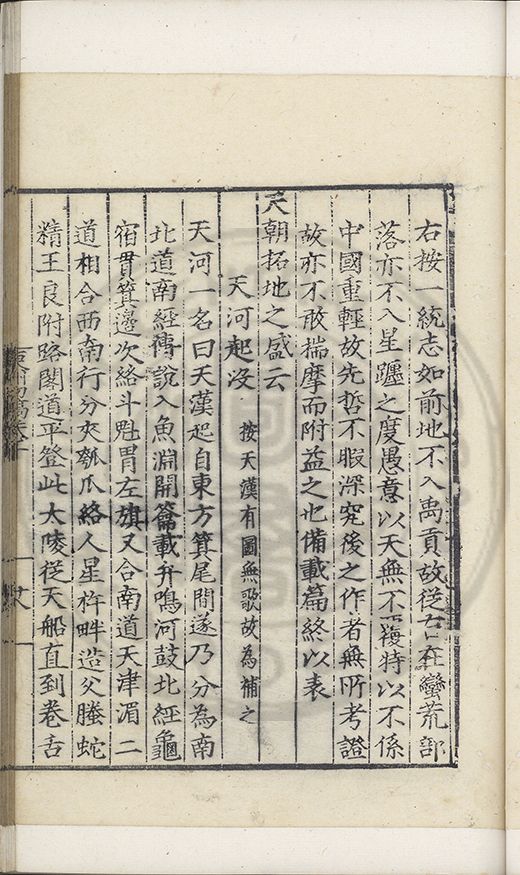 右按一統志如前地不入禹貢故從古在蠻荒部
落亦不入星躔之度愚意以天無不覆特以不係
中國重輕故先哲不暇深究後之作者無所考證
故亦不敢揣摩而附益之也備載篇終以表
天朝拓地之盛云
天河起没 按天漢有圖無歌故為補之
天河一名曰天漢起自東方箕尾間遂乃分為南
北道南經傅說入魚淵開籥載弁鳴河鼓北經龜
宿貫箕邊次絡斗魁胃左旗又合南道天津湄二
道相合西南行分夾瓠瓜絡人星杵畔造父螣蛇
精王良附路閣道平登此太陵從天船直到卷舌